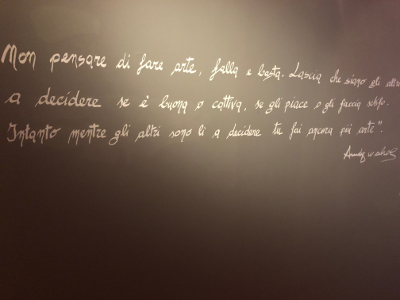 Non pensare di fare arte, falla e basta. Lascia che siano gli altri
a decidere se è buona o cattiva, se gli piace o gli faccia schifo.
Intanto mentre gli altri sono lì a decidere tu fai ancora più arte".
Andy Warhol